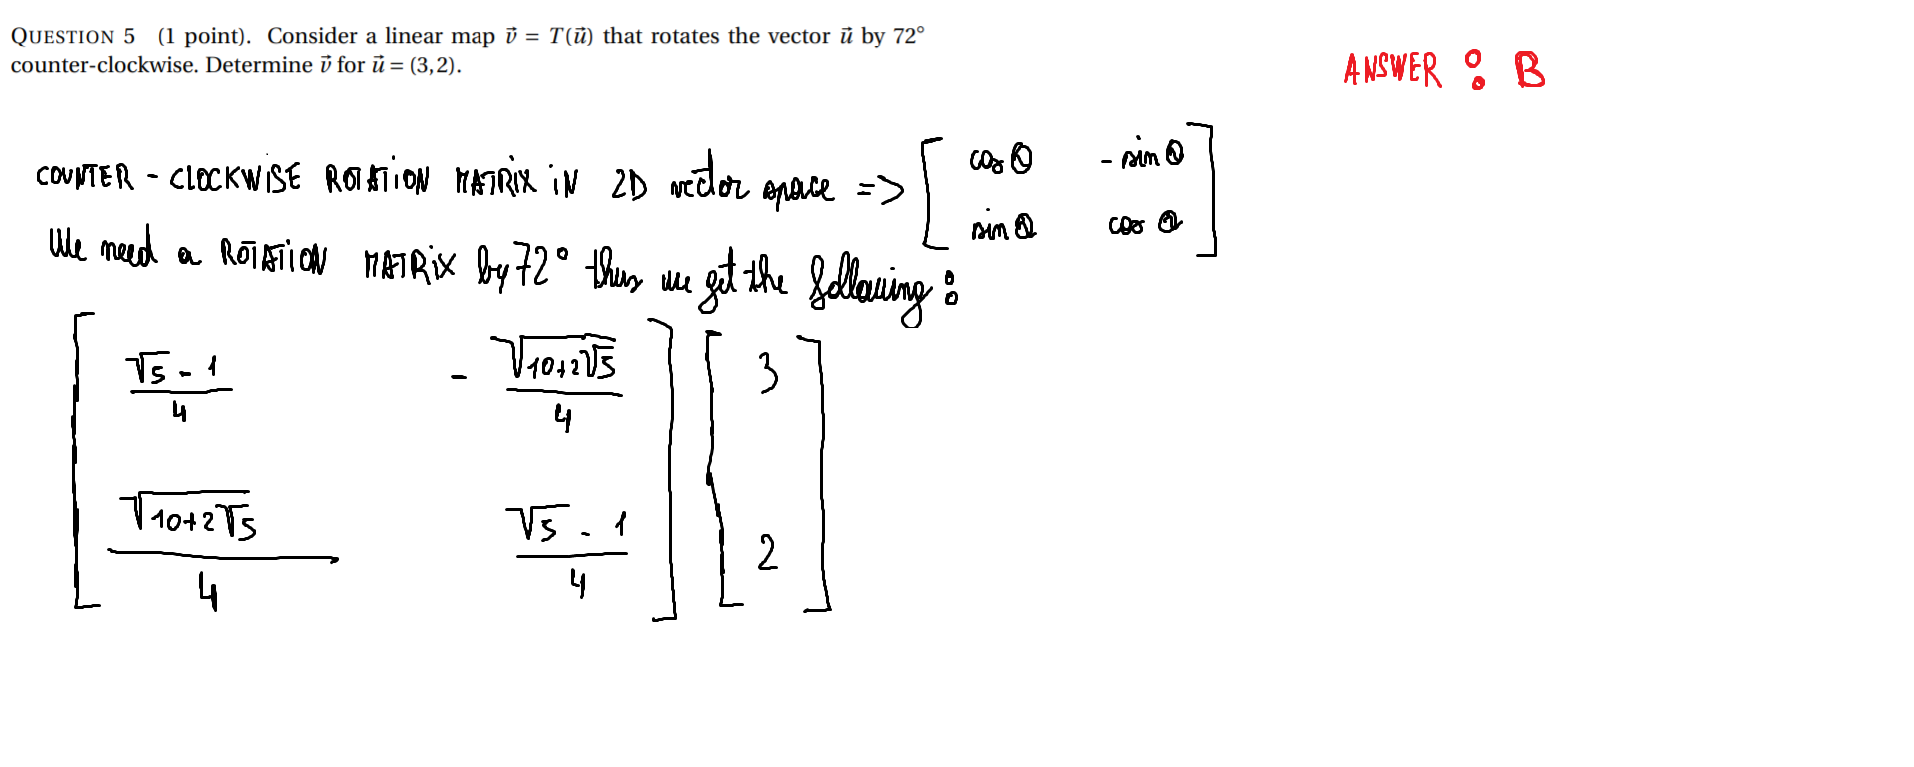 QUESTION 5 (1 point). Consider a linear map v⃗ = T(u⃗) that rotates the vector u⃗ by 72°
counter-clockwise. Determine v⃗ for u⃗ = (3,2).
ANSWER : B
COUNTER - CLOCKWISE ROTATION MATRIX IN 2D vector space => [ cos θ  - sin θ
sin θ  cos θ ]
We need a ROTATION MATRIX by 72° thus we get the following :
[ (√5 - 1)/4  - √(10+2√5)/4 ] [ 3 ]
[ √(10+2√5)/4  (√5 - 1)/4 ] [ 2 ]